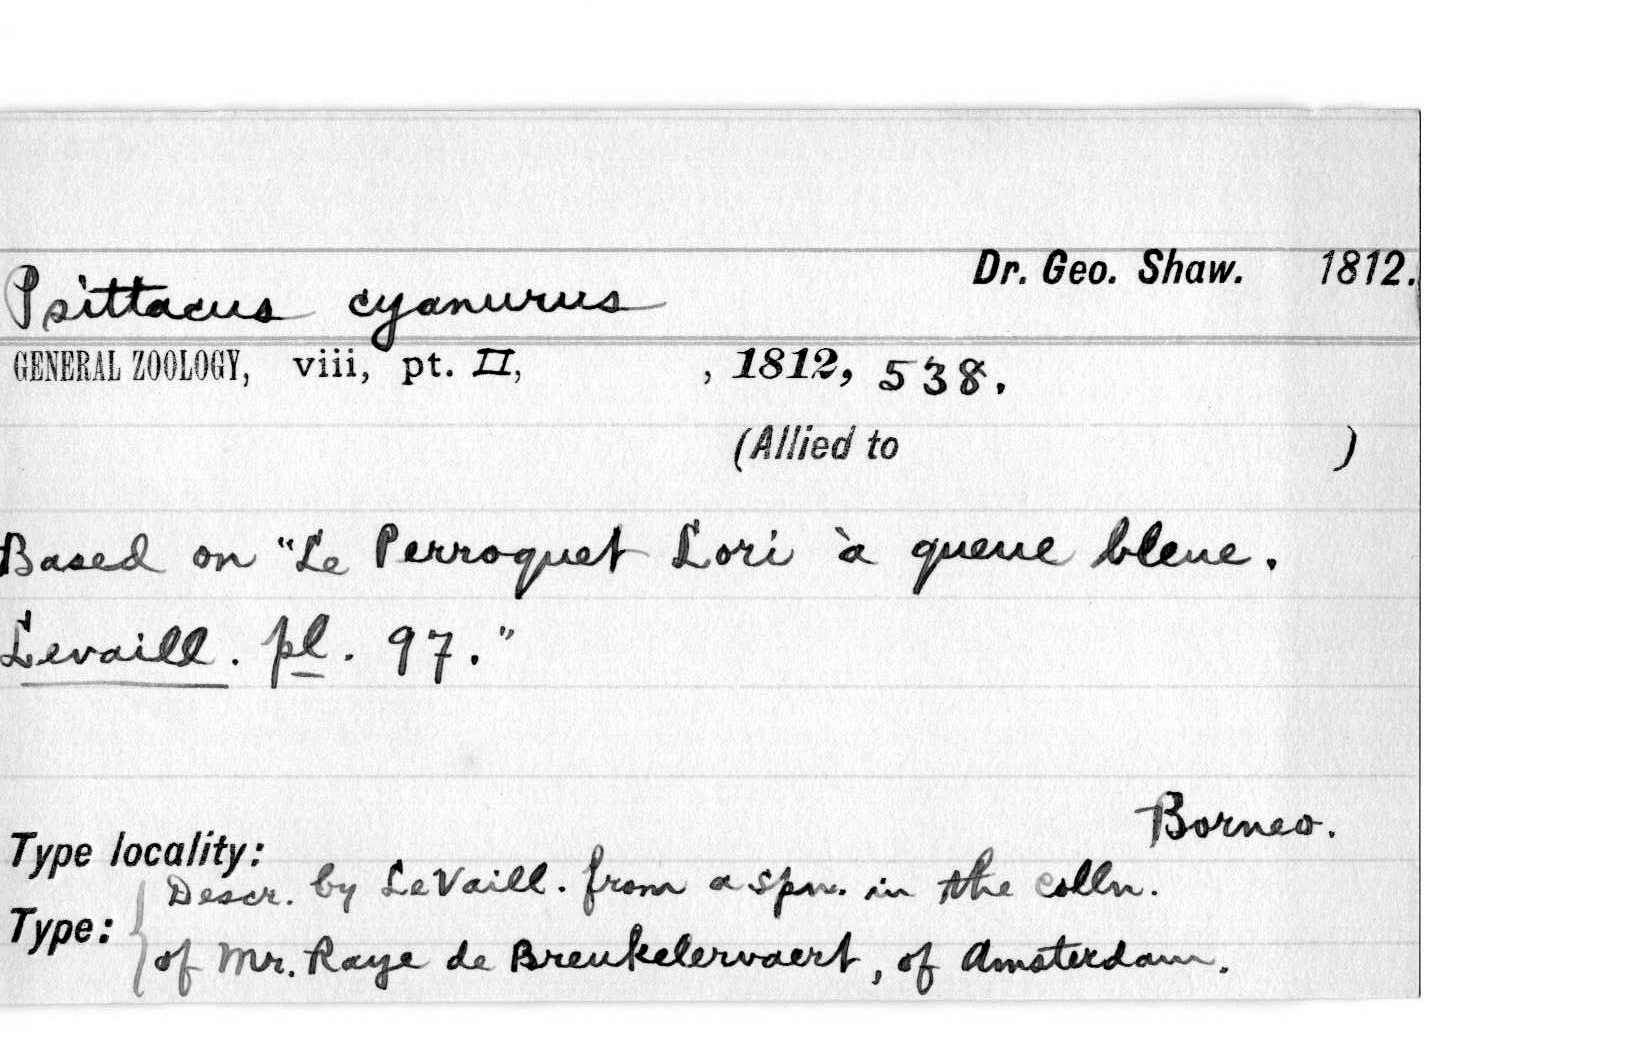 Dr. Geo. Shaw. 1812.
Psittacus cyanurus
GENERAL ZOOLOGY, viii, pt. II, , 1812, 538.
(Allied to )
Based on "Le Perroquet Lori à queue bleue.
Levaill. pl. 97."
Borneo.
Type locality:
Descr. by LeVaill. from a spn. in the colln.
Type: of Mr. Raye de Breukelervaert, of Amsterdam.